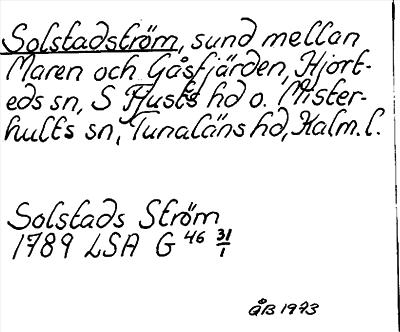 Solstadström, sund mellan
Maren och Gåsfjärden, Hjort-
eds sn, S Tjusts hd o. Mister-
hults sn, Tunaläns hd, Kalm. l.
Solstads Ström
1789 LSA G 46 31/1
GB 1973